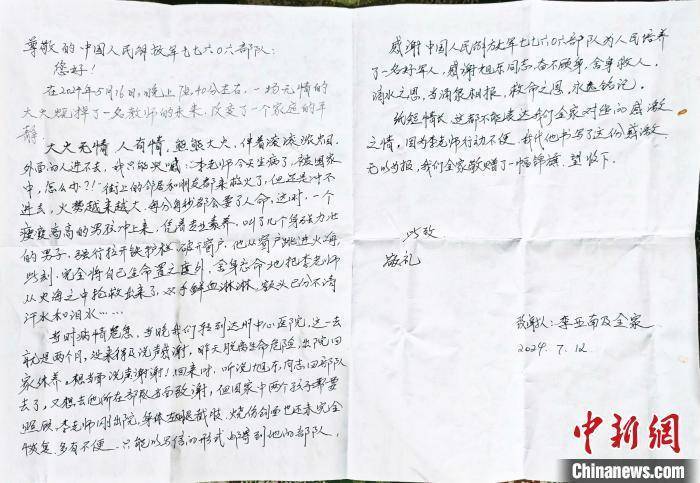 尊敬的中国人民解放军七七六0六部队:
您好!
在2024年5月16日,晚上10时40分左右,一场无情的
大火烧掉了一名教师的未来,改变了一个家庭的平
静
大火无情 人有情,熊熊大火,伴着滚滚浓出来,
外面的人进不去,我只能哭喊:心李老师今天生病了,被困家
中,怎么办?!街上的邻居和朋友都来救火了,但还是冲不
进去,火势越来越大,每分每秒都会要了人命,这时,一个
瘦瘦高高的男孩冲上来,凭着专业素养,叫了几个身强力壮
的男子,强行拉开铁护栏 破开窗户,他从窗户跳进火海,
此刻,完全将自己生命置之度外,舍身忘命地把李老师
从火海之中抢救出来了,双手鲜血淋淋,额头已分不清
汗水和泪水……
当时病情危急,当晚我们转到达州中心医院,这一去
就是两个月,没来得及说声感谢,昨天脱离生命危险,出院回
家休养。想当面说声谢谢!回来时,听说旭东同志回部队
去了,又想去他所在部队当面致谢,但因家中两个孩子都要
照顾,李老师刚出院,身体 截肢,烧伤创面也还未完全
恢复,多有不便。只能以写信的形式邮寄到他的部队,
感谢中国人民解放军七七六0六部队为人民培养
了一名好军人,感谢旭东同志,奋不顾身,舍身救人。
滴水之恩,当涌泉相报,救命之恩,永远铭记。
纸短情长,这都不能表达我们全家对您的感激
之情,因为李老师行动不便。我代他书写了这份感激
无以为报,我们全家敬赠了一幅锦旗,望收下。
此致
敬礼
致谢人:李亚南及全家
2024.7.12
中新网
Chinanews.com